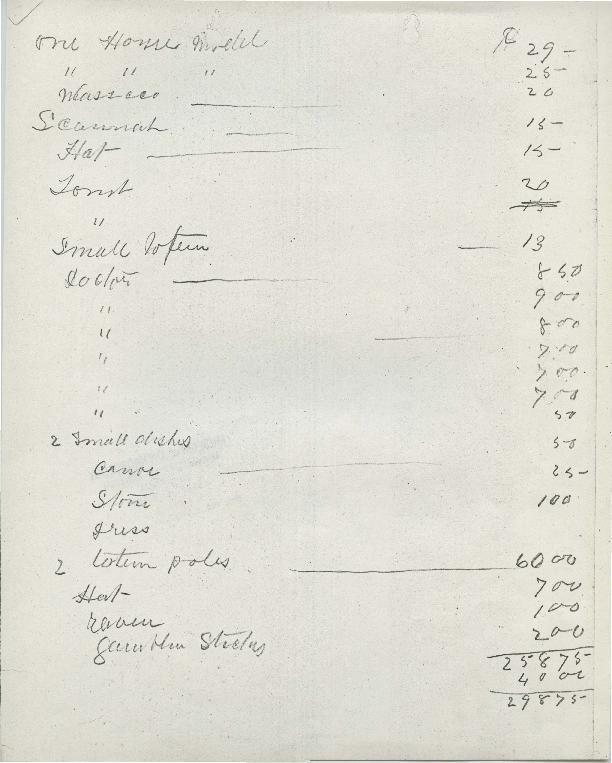 One House Model $ 29-
" " " 25-
Masseco 20
Scannah 15-
Hat 15-
20
" 15
Small Totem 13
Doctor 8 50
" 9 00
" 8 00
" 7 00
" 7 00
" 7 00
" 50
2 Small dishes 50
Canoe 25-
Stone 1 00
Dress
2 totem poles 60 00
Hat 7 00
raven 1 00
Gamblin Sticks 2 00
258 75
40 00
298 75